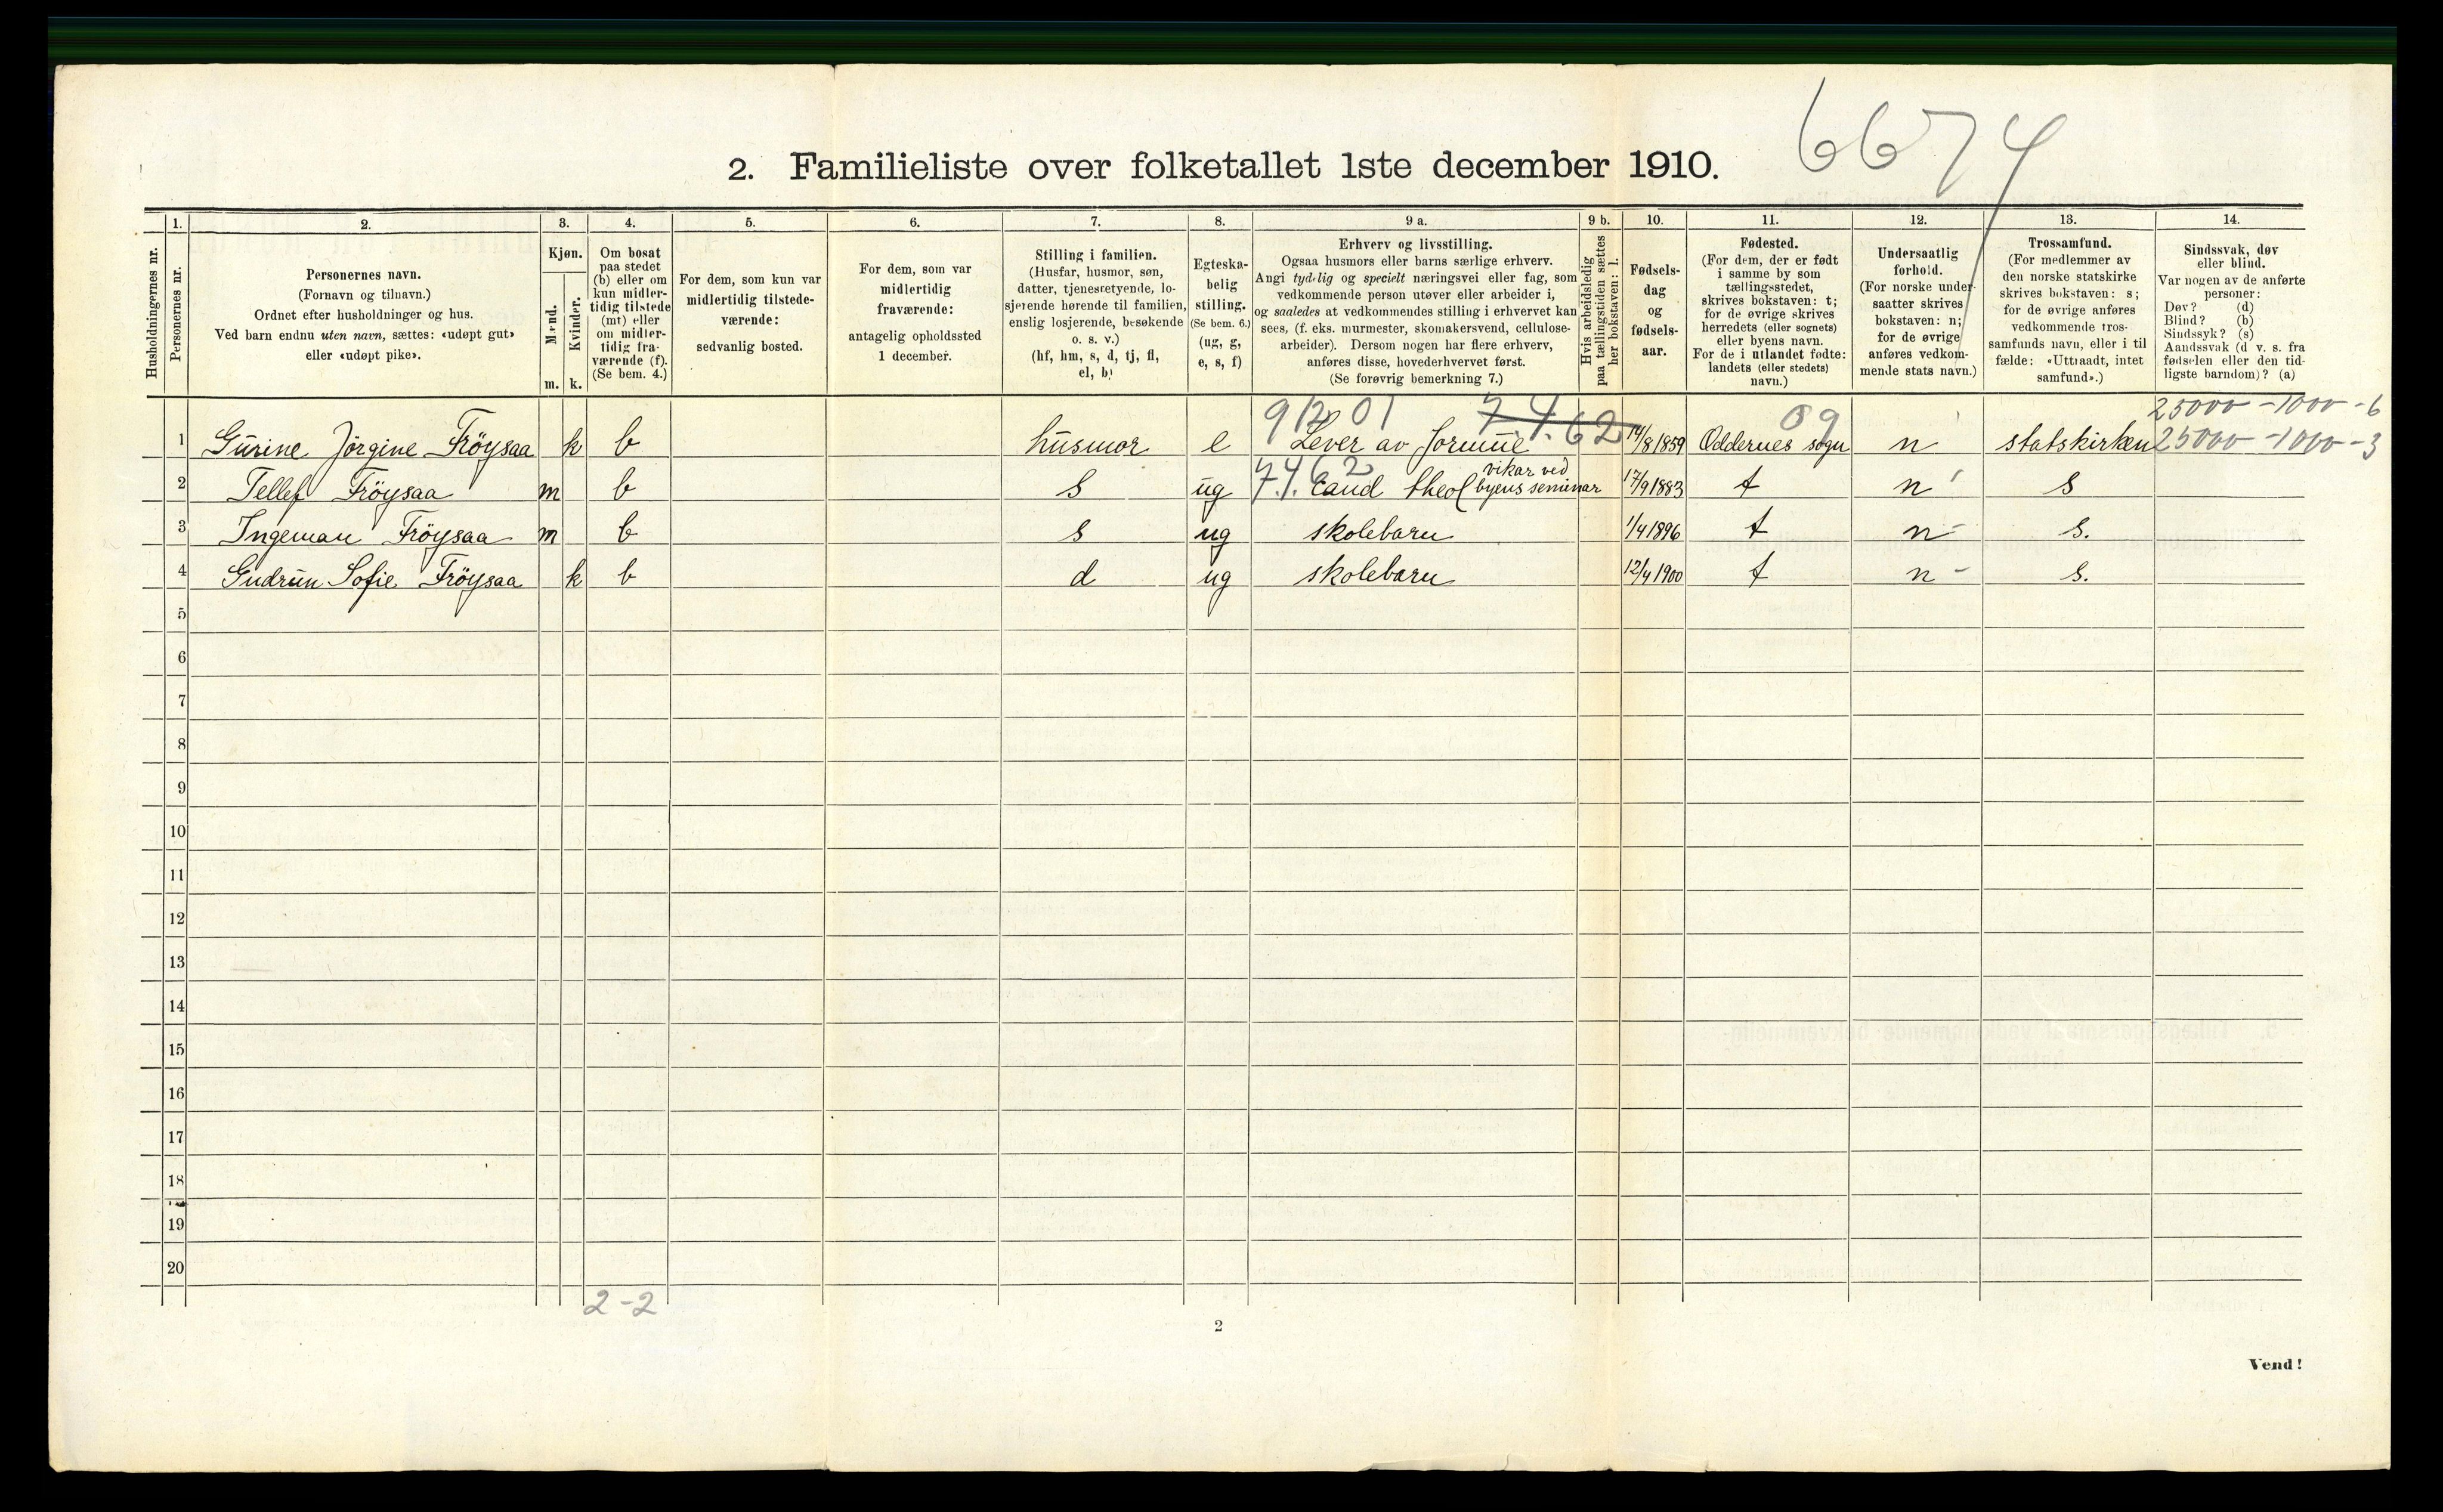 6674
2. Familieliste over folketallet 1ste december 1910.
1. 2. 3. 4. 5. 6. 7. 8. 9 a. 9 b. 10. 11. 12. 13. 14.
Husholdningernes nr.
Personernes nr.
Personernes navn.
(Fornavn og tilnavn.)
Ordnet efter husholdninger og hus.
Ved barn endnu uten navn, sættes: «udøpt gut»
eller «udøpt pike».
Kjøn.
Mænd.
Kvinder.
m. k.
Om bosat
paa stedet
(b) eller om
kun midler-
tidig tilstede
(mt) eller
om midler-
tidig fra-
værende (f).
(Se bem. 4.)
For dem, som kun var
midlertidig tilstede-
værende:
sedvanlig bosted.
For dem, som var
midlertidig
fraværende:
antagelig opholdssted
1 december.
Stilling i familien.
(Husfar, husmor, søn,
datter, tjenestetyende, lo-
sjerende hørende til familien,
enslig losjerende, besøkende
o. s. v.)
(hf, hm, s, d, tj, fl,
el, b)
Egteska-
belig
stilling.
(Se bem. 6.)
(ug, g,
e, s, f)
Erhverv og livsstilling.
Ogsaa husmors eller barns særlige erhverv.
Angi tydelig og specielt næringsvei eller fag, som
vedkommende person utøver eller arbeider i,
og saaledes at vedkommendes stilling i erhvervet kan
sees, (f. eks. murmester, skomakersvend, cellulose-
arbeider). Dersom nogen har flere erhverv,
anføres disse, hovederhvervet først.
(Se forøvrig bemerkning 7.)
Hvis arbeidsledig
paa tællingstiden sættes
her bokstaven: l.
Fødsels-
dag
og
fødsels-
aar.
Fødested.
(For dem, der er født
i samme by som
tællingsstedet,
skrives bokstaven: t;
for de øvrige skrives
herredets (eller sognets)
eller byens navn.
For de i utlandet fødte:
landets (eller stedets)
navn.)
Undersaatlig
forhold.
(For norske under-
saatter skrives
bokstaven: n;
for de øvrige
anføres vedkom-
mende stats navn.)
Trossamfund.
(For medlemmer av
den norske statskirke
skrives bokstaven: s;
for de øvrige anføres
vedkommende tros-
samfunds navn, eller i til-
fælde: «Uttraadt, intet
samfund».)
Sindssvak, døv
eller blind.
Var nogen av de anførte
personer:
Døv? (d)
Blind? (b)
Sindssyk? (s)
Aandssvak (d. v. s. fra
fødselen eller den tid-
ligste barndom)? (a)
7.4.62 09 25000 - 1000 - 6
1 Gurine Jörgine Fröysaa k b husmor e Lever av formue 14/8 1859 Oddernes sogn n statskirken 25000 - 1000 - 3
7.4.62 vikar ved
2 Tellef Fröysaa m b s ug Cand theol byens seminar 17/9 1883 t n s
3 Ingeman Fröysaa m b s ug skolebarn 1/4 1896 t n s.
4 Gudrun Sofie Fröysaa k b d ug skolebarn 12/4 1900 t n s.
5
6
7
8
9
10
11
12
13
14
15
16
17
18
19
20
2 - 2
2
Vend!